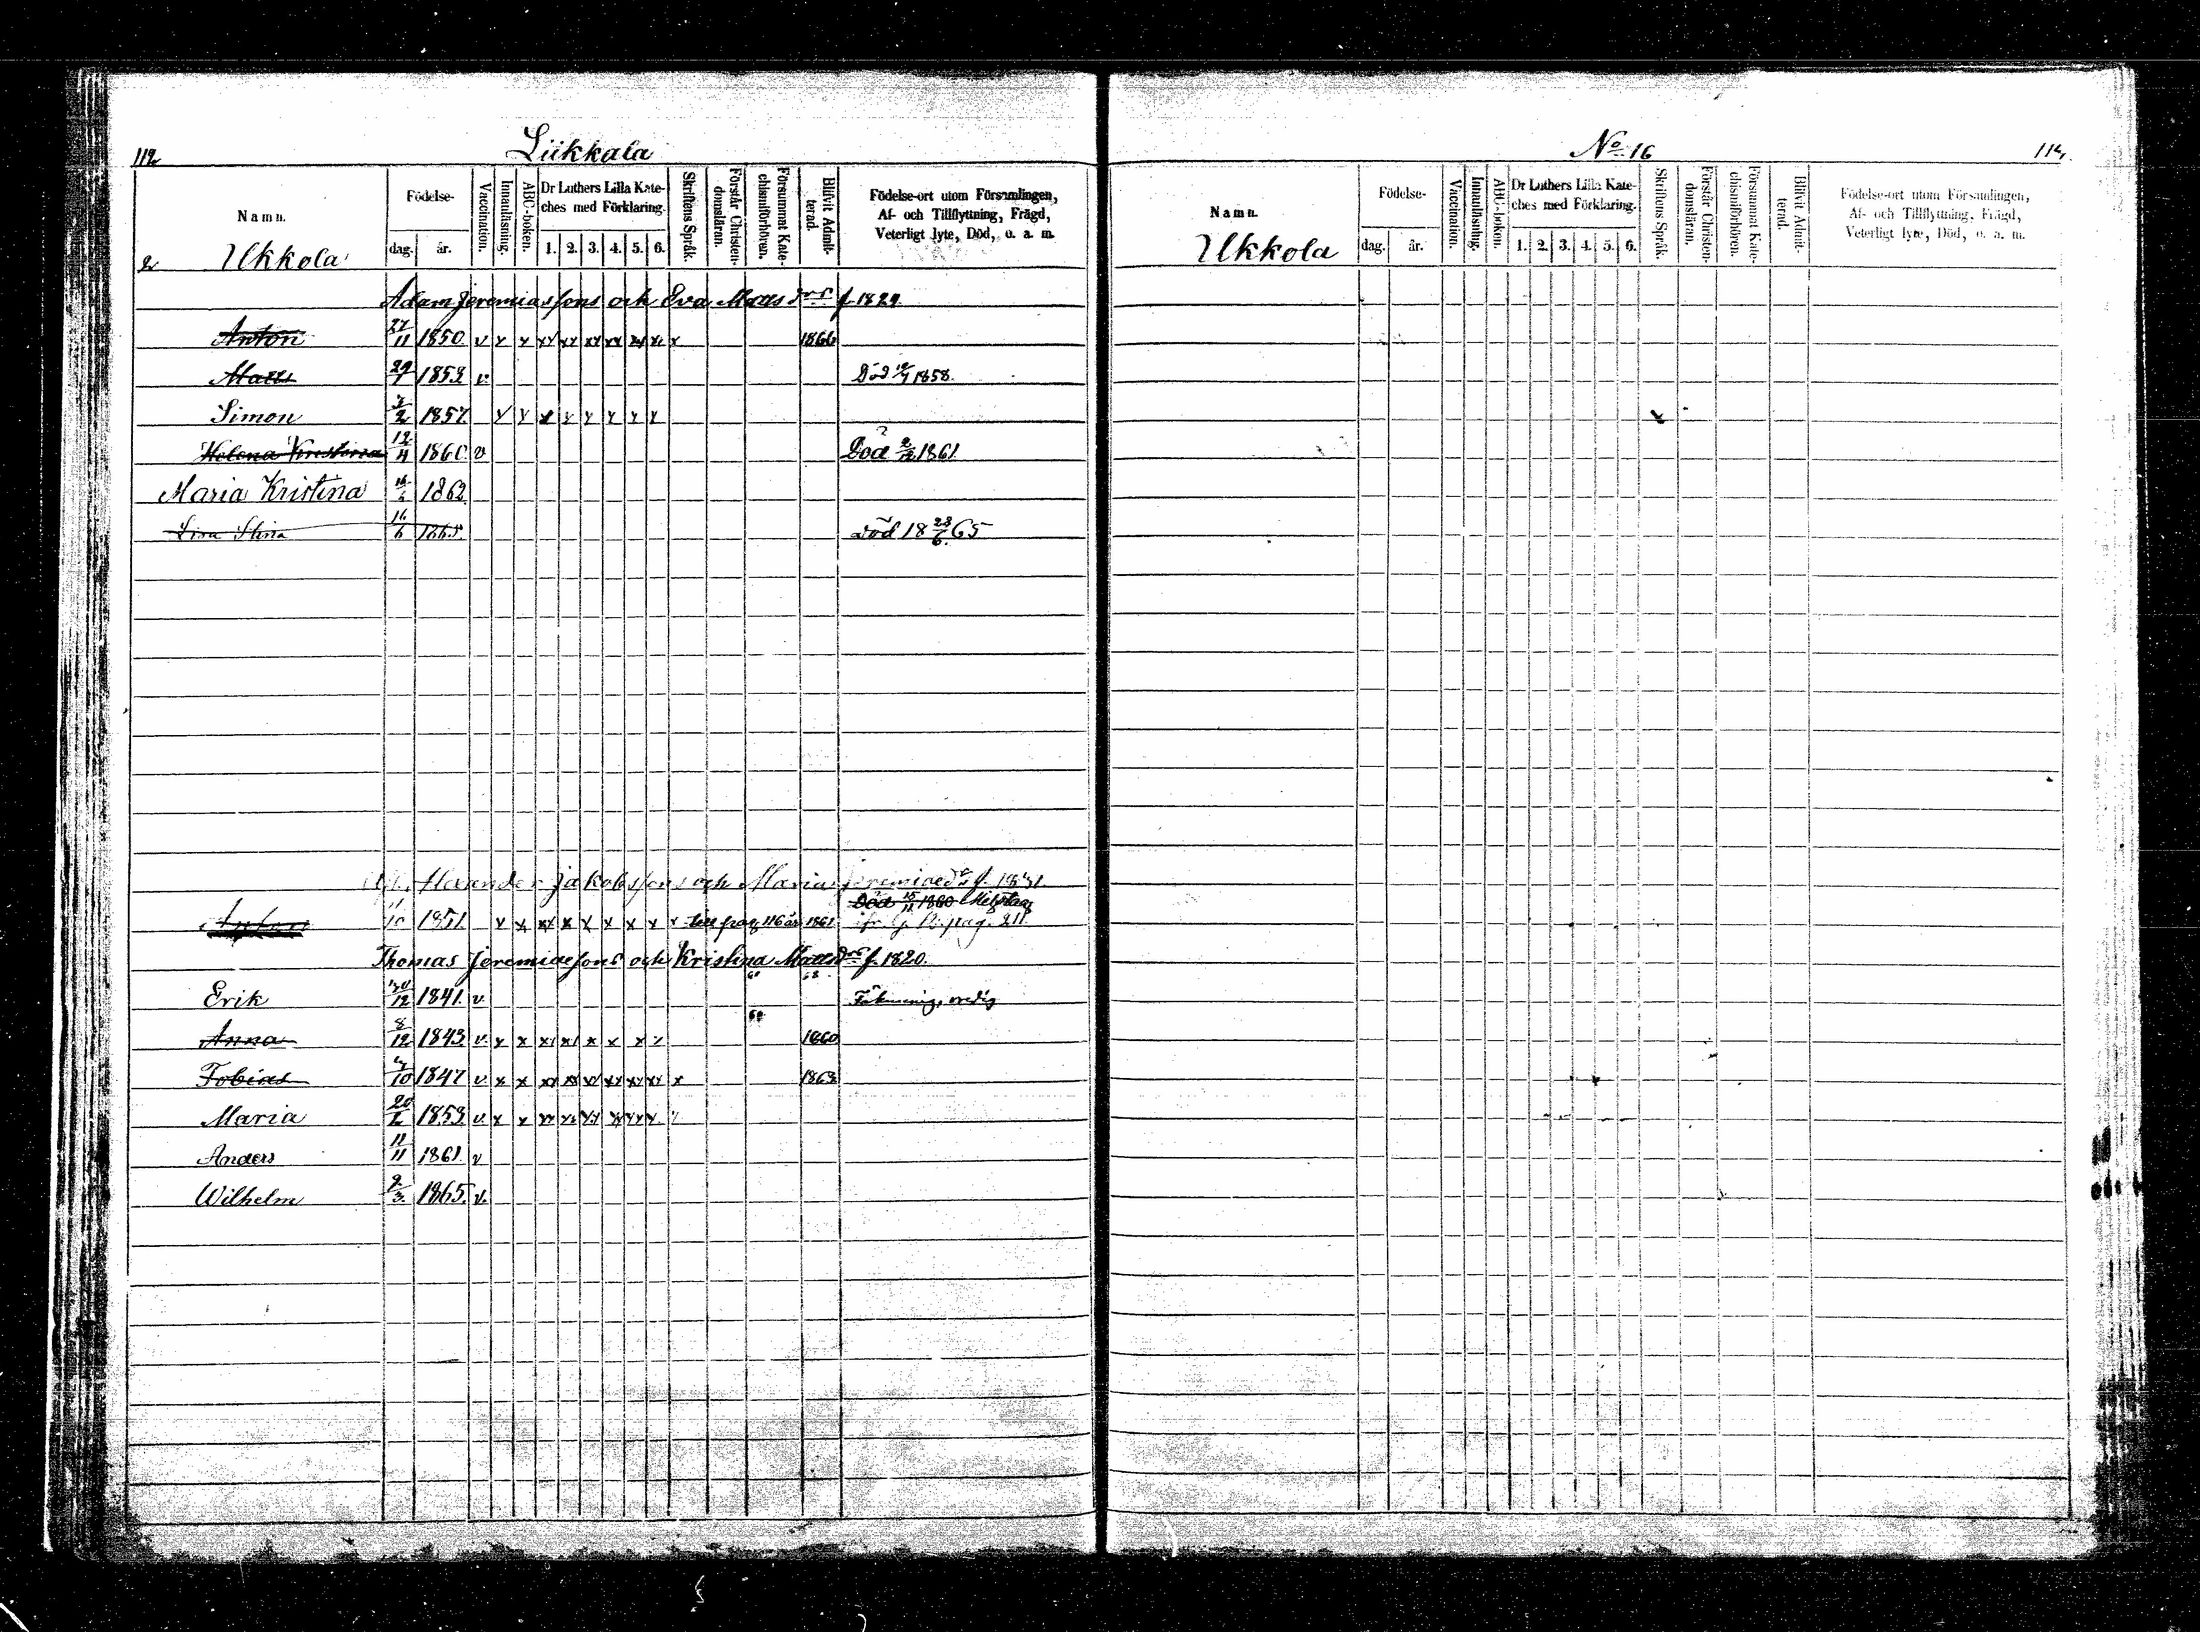 112
Liikkala
Namn.
Födelse-
dag.
år.
Vaccination.
Innanläsning.
ABC-boken.
Dr Luthers Lilla Kate-
ches med Förklaring.
1. 2. 3. 4. 5. 6.
Skriftens Språk.
Förstår Christen-
domsläran.
Försummat Kate-
chismiförhören.
Blifvit Admit-
terad.
Födelse-ort utom Församlingen,
Af- och Tillflyttning, Frägd,
Veterligt lyte, Död, o. a. m.
2 Ukkola
Adam Jeremiassons och Eva Matsdrs f. 1829
Anton 27/11 1850 v x x xx xx xx xx xx x x 1866
Matts 29/1 1852 v. Död 1858.
Simon 3/2 1857. x x x x x x x x
Helena Kristina 12/11 1860. v Död 1861
Maria Kristina 1862
Lisa Stina 16/6 1865. Död 18 23/6 65
Jakobssons och Maria Jeremiaed. f. 1831
Död 1860
10 1851. x x xx x x x x x x pag 116 1861 pag. 211.
Thomas Jeremiaesons och Kristina Matsdrs f. 1820.
Erik 1841. v.
60
Anna 8/12 1843 v. x x xx xx x x x x 1660
Tobias 1847 v. x x xx xx xx xx xx xx x 1863
Maria 1853 v. x x xx xx xx xx xx x
Anders 11/11 1861. v
Wilhelm 9/3 1865. v.
No 16
Namn.
Ukkola
Födelse-
dag.
år.
Vaccination.
Innanläsning.
ABC-boken.
Dr Luthers Lilla Kate-
ches med Förklaring.
1. 2. 3. 4. 5. 6.
Skriftens Språk.
Förstår Christen-
domsläran.
Försummat Kate-
chismiförhören.
Blifvit Admit-
terad.
Födelse-ort utom Församlingen,
Af- och Tillflyttning, Frägd,
Veterligt lyte, Död, o. a. m.